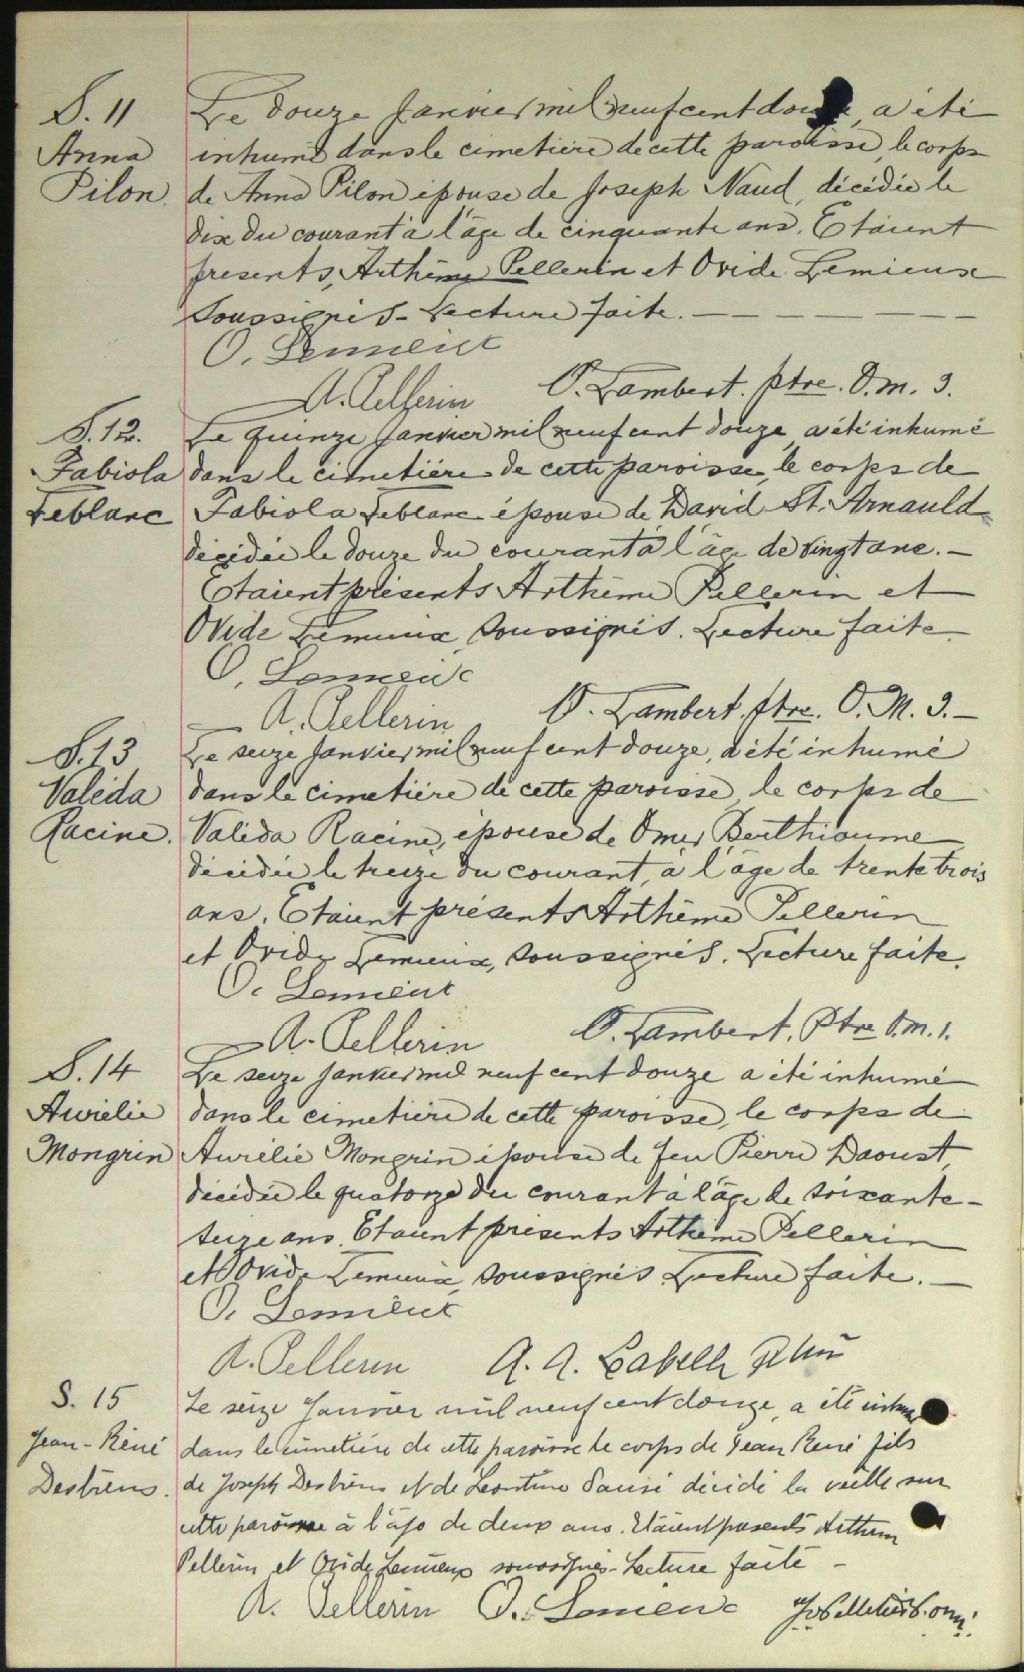 S. 11
Anna
Pilon.
Le douze Janvier mil neuf cent douze, a été
inhumé dans le cimetière de cette paroisse, le corps
de Anna Pilon épouse de Joseph Naud, décédée le
dix du courant à l'âge de cinquante ans. Etaient
présents, Arthème Pellerin et Ovide Lemieux
soussignés - Lecture faite. — — — — — —
O. Lemieux
A. Pellerin O. Lambert. ptre. O.M.I.
S. 12.
Fabiola
Leblanc
Le quinze Janvier mil neuf cent douze, a été inhumé
dans le cimetière de cette paroisse, le corps de
Fabiola Leblanc épouse de David St. Arnauld
décédée le douze du courant à l'âge de vingt ans. —
Etaient présents Arthème Pellerin et
Ovide Lemieux, soussignés. Lecture faite.
O. Lemieux
A. Pellerin O. Lambert. ptre. O.M.I. —
S. 13
Valéda
Racine.
Le seize Janvier mil neuf cent douze, a été inhumé
dans le cimetière de cette paroisse, le corps de
Valéda Racine, épouse de Omer Berthiaume
décédée le treize du courant, à l'âge de trente trois
ans. Etaient présents Arthème Pellerin
et Ovide Lemieux, soussignés. Lecture faite.
O. Lemieux
A. Pellerin O. Lambert. Ptre O.M.I.
S. 14
Aurélie
Mongrin
Le seize Janvier mil neuf cent douze a été inhumé
dans le cimetière de cette paroisse, le corps de
Aurélie Mongrin épouse de feu Pierre Daoust,
décédée le quatorze du courant à l'âge de soixante-
seize ans. Etaient présents Arthème Pellerin
et Ovide Lemieux, soussignés Lecture faite. —
O. Lemieux
A. Pellerin A. A. Labelle
S. 15
Jean-Réné
Destriens.
Le seize Janvier mil neuf cent douze, a été inhumé
dans le cimetière de cette paroisse le corps de Jean René fils
de Joseph et de Léontine décédé la veille sur
cette paroisse à l'âge de deux ans. Etaient présents Arthème
Pellerin et Ovide Lemieux soussignés - Lecture faite —
A. Pellerin O. Lemieux